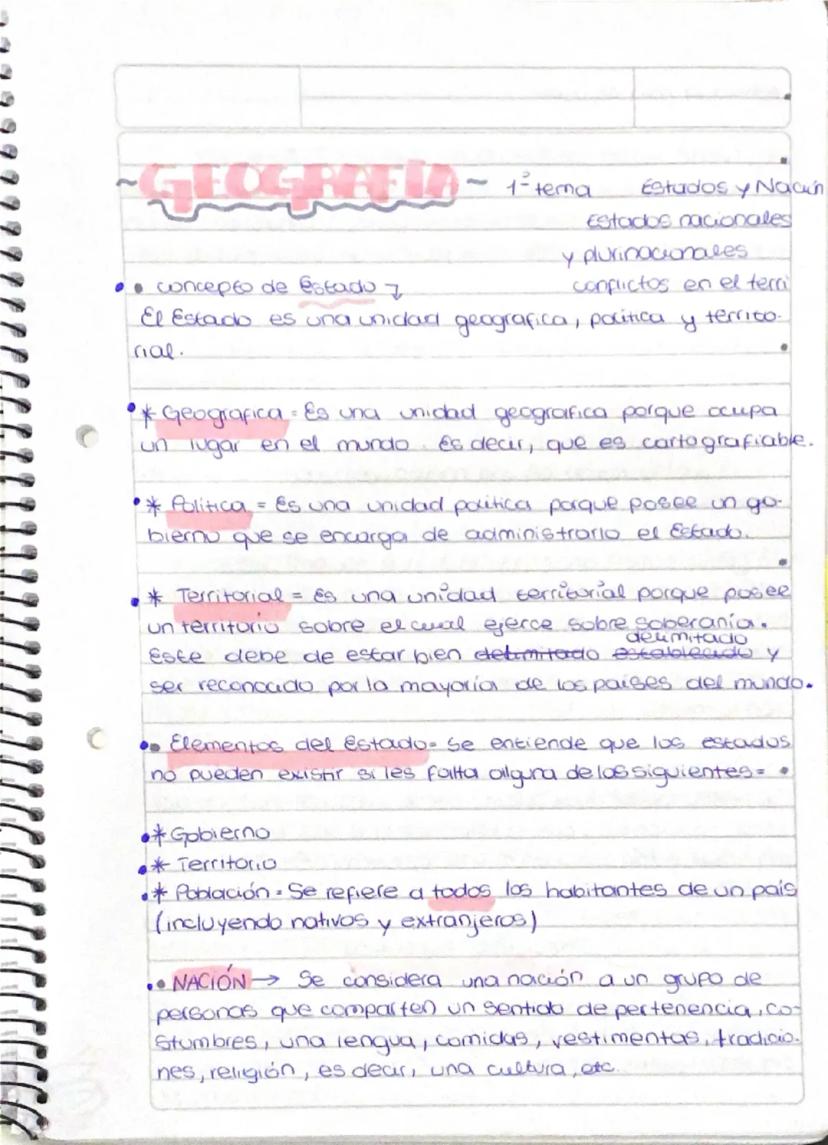 ~GEOGRAFÍA~ 1º tema Estados y Nación
Estados nacionales
y plurinacionales
• concepto de Estado conflictos en el terri
El Estado es una unidad geografica, politica y territo-
rial.
* Geografica = Es una unidad geografica porque ocupa
un lugar en el mundo. Es decir, que es cartografiable.
* Politica = Es una unidad politica porque posee un go-
bierno que se encarga de administrarlo el Estado.
* Territorial = Es una unidad territorial porque posee
un territorio sobre el cual ejerce sobre soberanía.
delimitado
Este debe de estar bien delimitado establecido y
ser reconocido por la mayoría de los paises del mundo.
• Elementos del Estado= Se entiende que los estados
no pueden existir si les falta alguna de las siguientes=
* Gobierno
* Territorio
* Población = Se refiere a todos los habitantes de un país
(incluyendo nativos y extranjeros)
• NACIÓN → Se considera una nación a un grupo de
personas que comparten un sentido de pertenencia, co-
stumbres, una lengua, comidas, vestimentas, tradicio-
nes, religión, es decir, una cultura, etc.